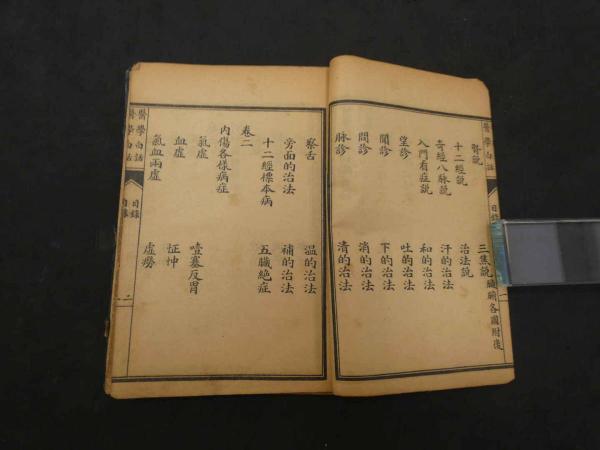 醫學白話
目錄
腎說
三焦說 臟腑各圖附後
十二經說
治法說
奇經八脉說
汗的治法
入門看症說
和的治法
望診
吐的治法
聞診
下的治法
問診
消的治法
脉診
清的治法
察舌
温的治法
旁面的治法
補的治法
十二經標本病
五臟絶症
卷二
內傷各樣病症
氣虛
噎塞反胃
血虛
怔忡
氣血兩虛
虛癆
醫學白話
目錄